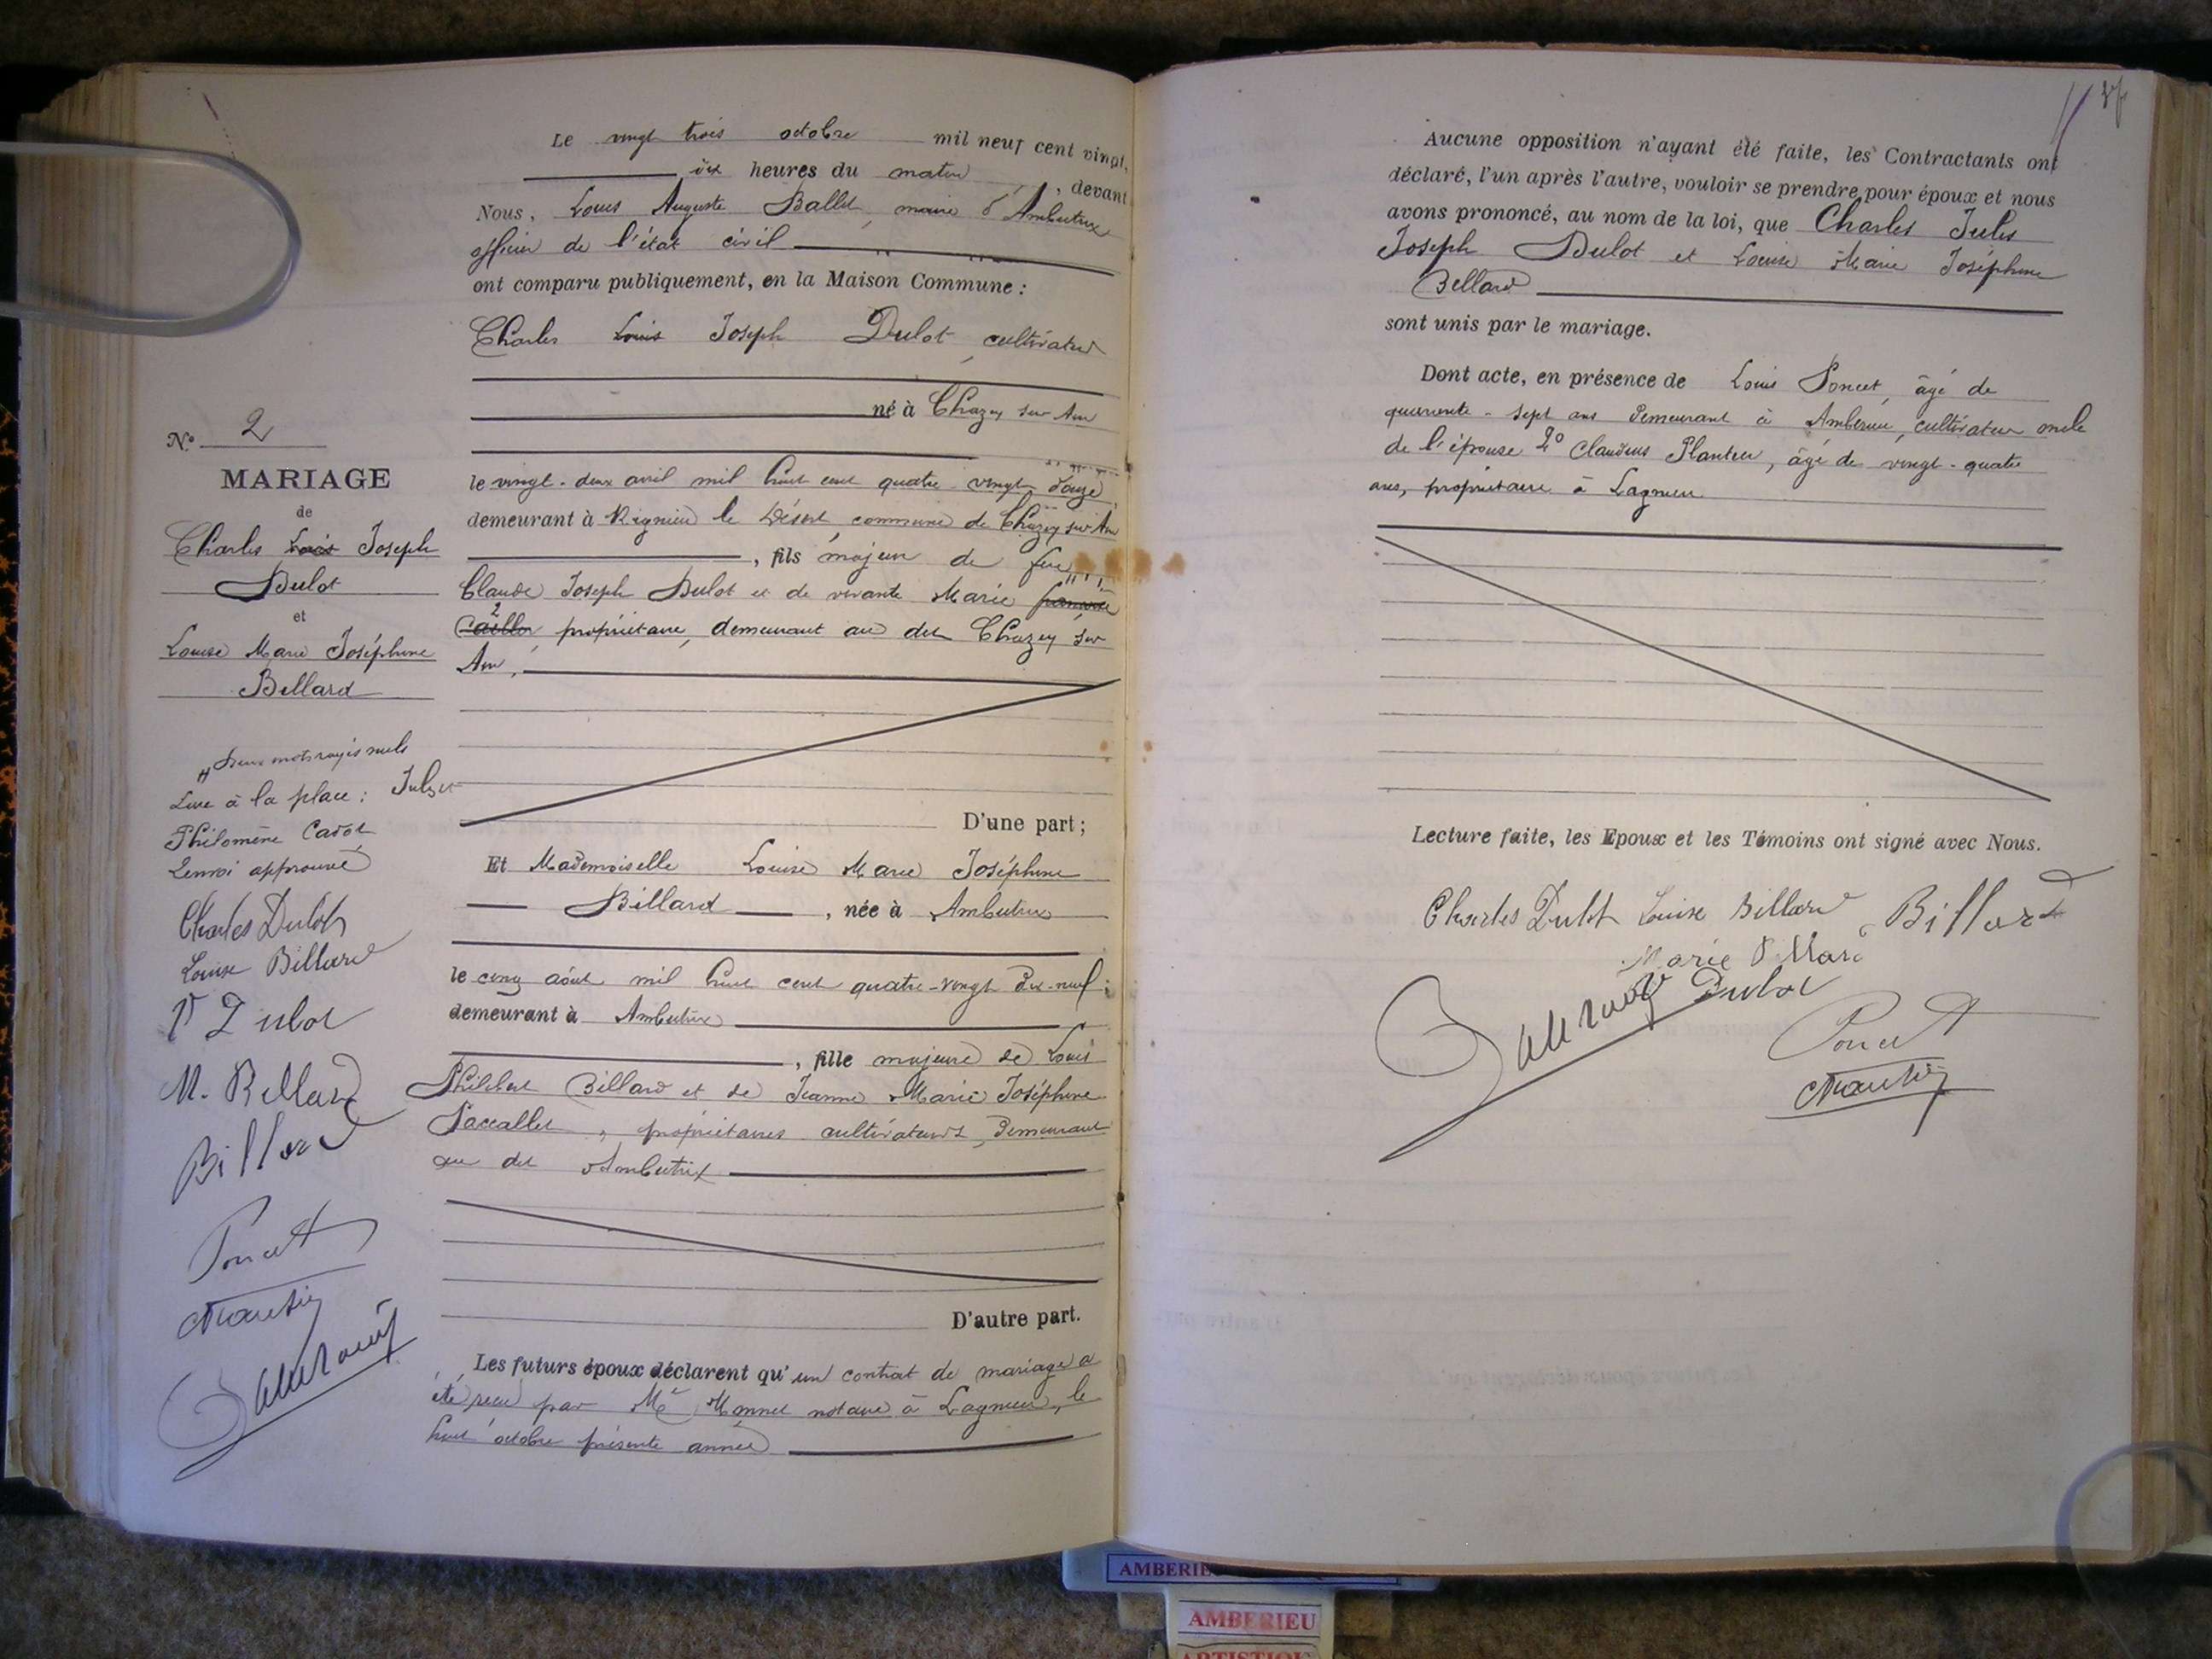 Le vingt trois octobre mil neuf cent vingt,
dix heures du matin, devant
Nous, Louis Auguste Ballet, maire d'Ambutrix
officier de l'état civil
ont comparu publiquement, en la Maison Commune :
Charles Louis Joseph Dulot, cultivateur
né à Chazey sur Ain
le vingt-deux avril mil huit cent quatre vingt douze
demeurant à Rignieu le Désert, commune de Chazey sur Ain
, fils majeur de feu
Claude Joseph Dulot et de vivante Marie
propriétaire, demeurant au dit Chazey sur
Ain,
D'une part ;
Et Mademoiselle Louise Marie Joséphine
Billard, née à Ambutrix
le cinq août mil huit cent quatre-vingt dix-neuf ;
demeurant à Ambutrix
, fille majeure de Louis
Philibert Billard et de Jeanne Marie Joséphine
propriétaires cultivateurs, demeurant
au dit Ambutrix
D'autre part.
Les futurs époux déclarent qu'un contrat de mariage a
été reçu par Me Monnet notaire à Lagnieu, le
huit octobre présente année
No 2
MARIAGE
de
Charles Louis Joseph
Dulot
et
Louise Marie Joséphine
Billard
Deux mots rayés nuls
Lire à la place : Jules
Philomène Cadot
Renvoi approuvé
Charles Dulot
Louise Billard
Vve Dulot
M. Billard
Billard
Poncet
Aucune opposition n'ayant été faite, les Contractants ont
déclaré, l'un après l'autre, vouloir se prendre pour époux et nous
avons prononcé, au nom de la loi, que Charles Jules
Joseph Dulot et Louise Marie Joséphine
Billard
sont unis par le mariage.
Dont acte, en présence de Louis Poncet, âgé de
quarante-sept ans demeurant à Ambérieu, cultivateur
de l'épouse 2o Claudius, âgé de vingt-quatre
ans, propriétaire à Lagnieu
Lecture faite, les Epoux et les Témoins ont signé avec Nous.
Charles Dulot Louise Billard Billard
Marie Billard
Vve Dulot
Poncet
AMBERIEU
AMBERIEU
ARTISTIQU